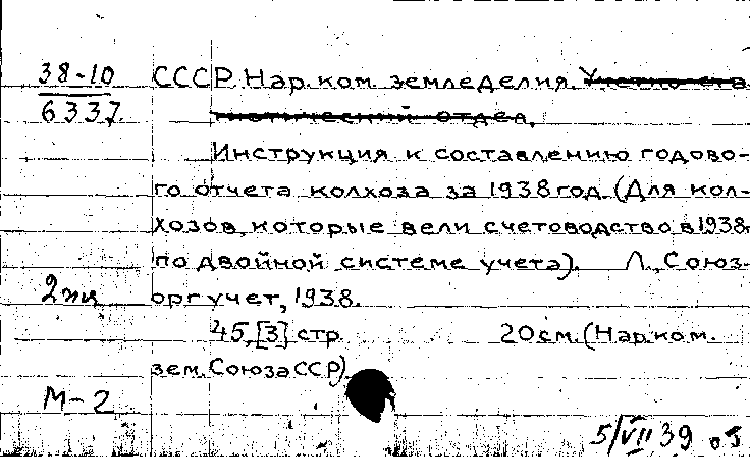 38-10
6337.
СССР. Нар. ком. земледелия. Учетно-ста
тистический отдел.
Инструкция к составлению годово-
го отчета колхоза за 1938 год. (Для кол-
хозов, которые вели счетоводство в 1938
по двойной системе учета). Л., Союз-
оргучет, 1938.
2 экз
45, [3] стр. 20 см. (Нар. ком.
зем. Союза ССР).
М-2
5/VII 39